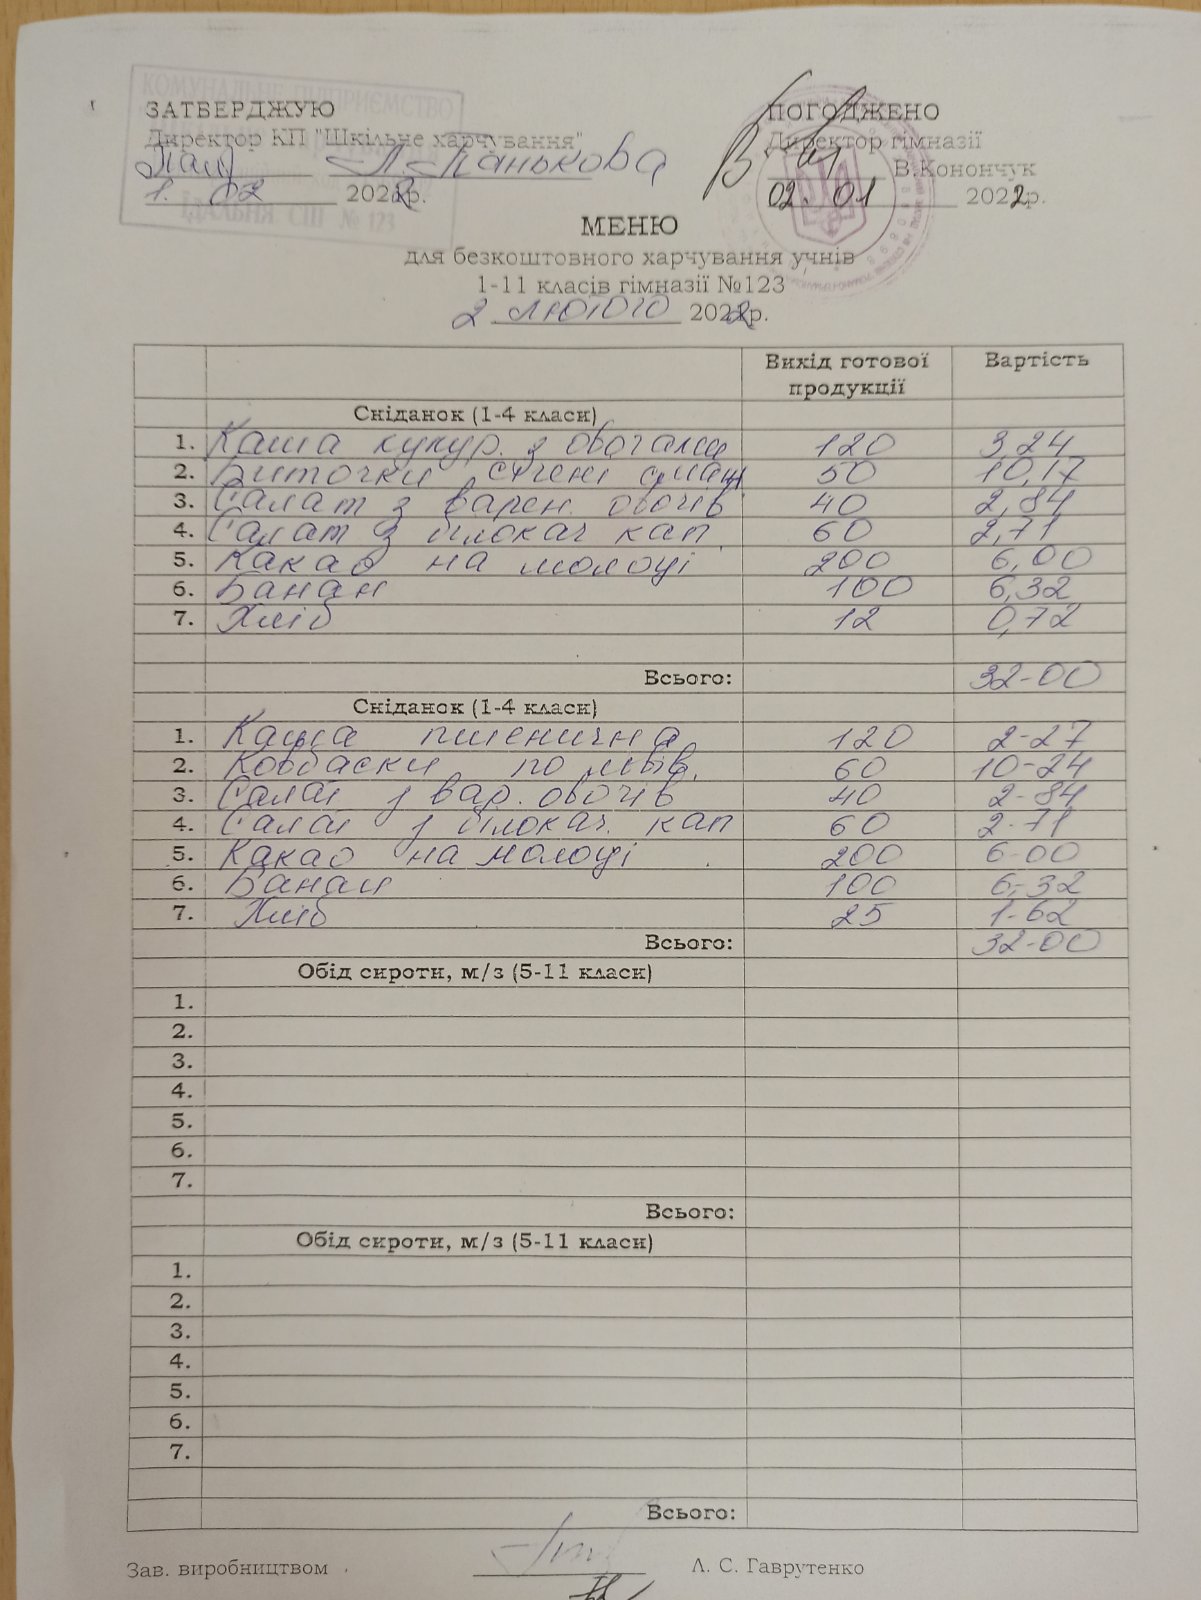 КОМУНАЛЬНЕ ПІДПРИЄМСТВО
ЇДАЛЬНЯ СШ № 123
ЗАТВЕРДЖУЮ
Директор КП "Шкільне харчування"
Л. Панькова
1. 02 2022р.
ПОГОДЖЕНО
Директор гімназії
В.Конончук
02. 01 2022р.
МЕНЮ
для безкоштовного харчування учнів
1-11 класів гімназії №123
2 лютого 2022р.
Вихід готової продукції Вартість
Сніданок (1-4 класи)
1. Каша кукур. з овочами 120 3,24
2. Биточки січені 50 10,17
3. Салат з варен. овочів 40 2,84
4. Салат з білокач кап. 60 2,71
5. Какао на молоці 200 6,00
6. Банан 100 6,32
7. Хліб 12 0,72
Всього: 32-00
Сніданок (1-4 класи)
1. Каша пшенична 120 2-27
2. Ковбаски по львів. 60 10-24
3. Салат з вар. овочів 40 2-84
4. Салат з білокач. кап 60 2-71
5. Какао на молоці 200 6-00
6. Банан 100 6-32
7. Хліб 25 1-62
Всього: 32-00
Обід сироти, м/з (5-11 класи)
1.
2.
3.
4.
5.
6.
7.
Всього:
Обід сироти, м/з (5-11 класи)
1.
2.
3.
4.
5.
6.
7.
Всього:
Зав. виробництвом Л. С. Гаврутенко